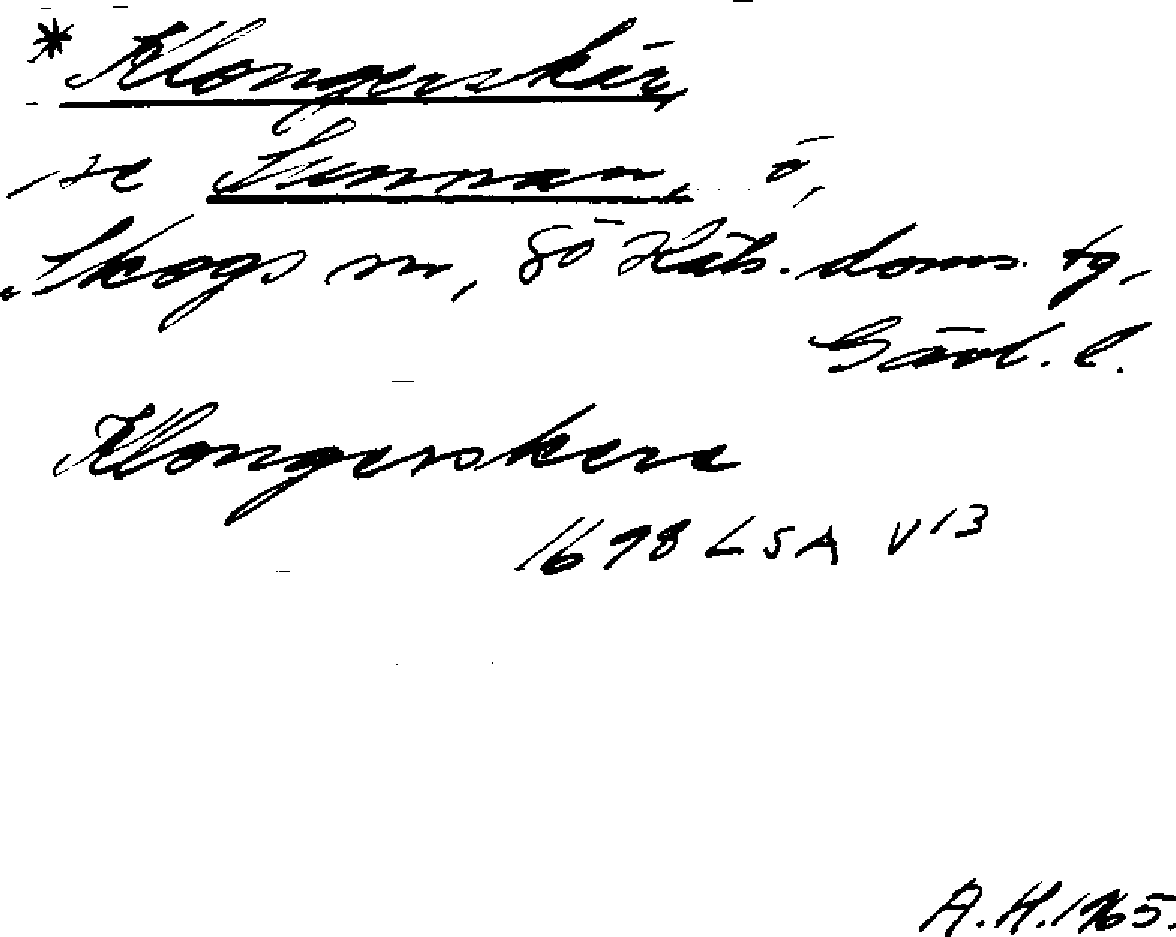 * Klongerskär,
se Sunnan, ö,
Skogs sn, Sö Häls. doms. tg,
Gävl. l.
Klongerskere
1698 LSA V 13
A.H. 1965.